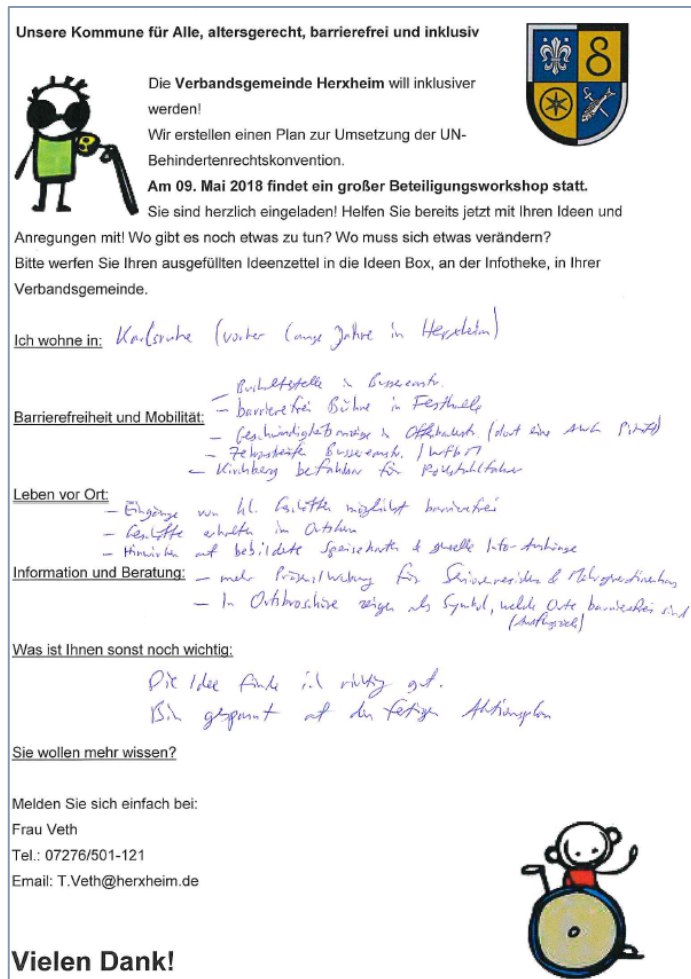 Unsere Kommune für Alle, altersgerecht, barrierefrei und inklusiv
Die Verbandsgemeinde Herxheim will inklusiver
werden!
Wir erstellen einen Plan zur Umsetzung der UN-
Behindertenrechtskonvention.
Am 09. Mai 2018 findet ein großer Beteiligungsworkshop statt.
Sie sind herzlich eingeladen! Helfen Sie bereits jetzt mit Ihren Ideen und
Anregungen mit! Wo gibt es noch etwas zu tun? Wo muss sich etwas verändern?
Bitte werfen Sie Ihren ausgefüllten Ideenzettel in die Ideen Box, an der Infotheke, in Ihrer
Verbandsgemeinde.
Ich wohne in: Karlsruhe (vorher lange Jahre in Herxheim)
– Bushaltestelle in Bussereaustr.
Barrierefreiheit und Mobilität: – barrierefrei Bühne in Festhalle
– Geschwindigkeitsanzeige in (dort eine
– Zebrastreifen Bussereaustr. / WfbM
– Kirchberg befahrbar für Rollstuhlfahrer
Leben vor Ort:
– Eingänge von kl. Geschäften möglichst barrierefrei
– Geschäfte erhalten im Ortskern
– Hinwirken auf bebilderte Speisekarten & Info-Aushänge
Information und Beratung: – mehr für Seniorenresidenz &
– In Ortsbroschüre zeigen als Symbol, welche Orte barrierefrei sind
Was ist Ihnen sonst noch wichtig:
Die Idee finde ich richtig gut.
Bin gespannt auf den fertigen Aktionsplan
Sie wollen mehr wissen?
Melden Sie sich einfach bei:
Frau Veth
Tel.: 07276/501-121
Email: T.Veth@herxheim.de
Vielen Dank!